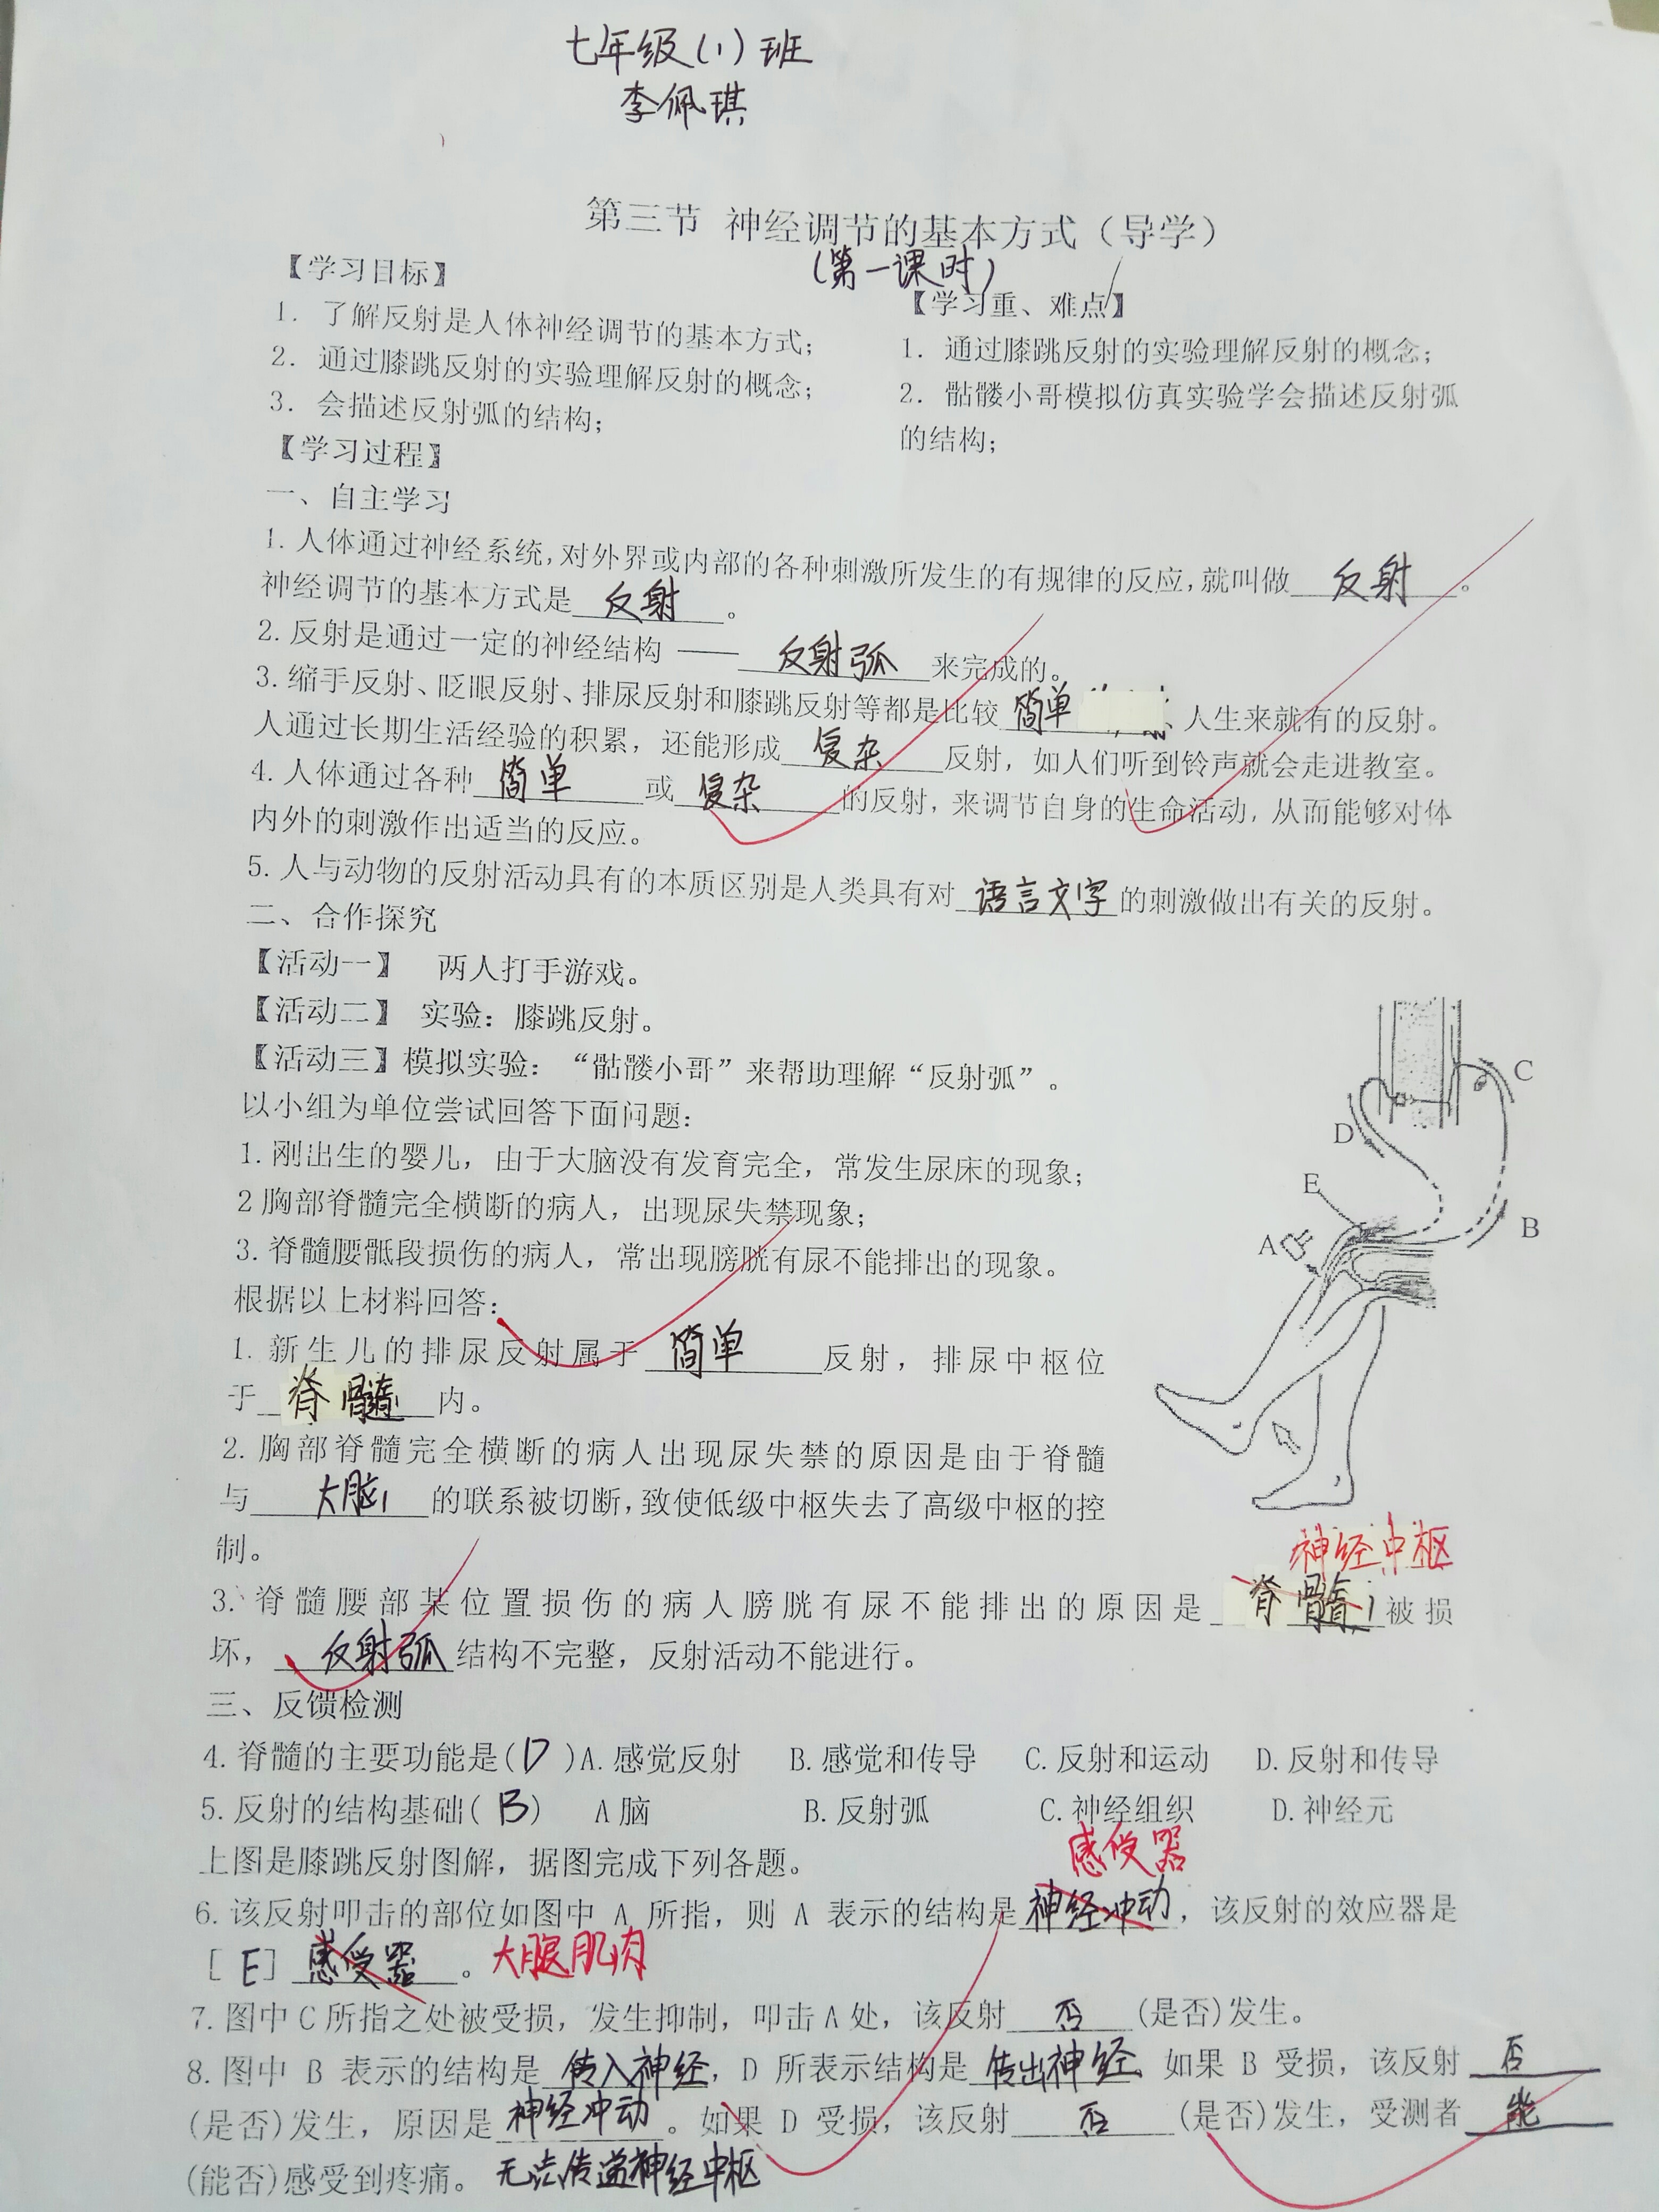 七年级(1)班
李佩琪
第三节 神经调节的基本方式（导学）
(第一课时)
【学习目标】
1. 了解反射是人体神经调节的基本方式；
2. 通过膝跳反射的实验理解反射的概念；
3. 会描述反射弧的结构；
【学习重、难点】
1. 通过膝跳反射的实验理解反射的概念；
2. 骷髅小哥模拟仿真实验学会描述反射弧
的结构；
【学习过程】
一、自主学习
1. 人体通过神经系统,对外界或内部的各种刺激所发生的有规律的反应,就叫做 反射 。
神经调节的基本方式是 反射 。
2. 反射是通过一定的神经结构 —— 反射弧 来完成的。
3. 缩手反射、眨眼反射、排尿反射和膝跳反射等都是比较 简单 、人生来就有的反射。
人通过长期生活经验的积累，还能形成 复杂 反射，如人们听到铃声就会走进教室。
4. 人体通过各种 简单 或 复杂 的反射，来调节自身的生命活动，从而能够对体
内外的刺激作出适当的反应。
5. 人与动物的反射活动具有的本质区别是人类具有对 语言文字 的刺激做出有关的反射。
二、合作探究
【活动一】 两人打手游戏。
【活动二】 实验：膝跳反射。
【活动三】模拟实验：“骷髅小哥”来帮助理解“反射弧”。
以小组为单位尝试回答下面问题：
1. 刚出生的婴儿，由于大脑没有发育完全，常发生尿床的现象；
2 胸部脊髓完全横断的病人，出现尿失禁现象；
3. 脊髓腰骶段损伤的病人，常出现膀胱有尿不能排出的现象。
根据以上材料回答：
1. 新生儿的排尿反射属于 简单 反射，排尿中枢位
于 脊髓 内。
2. 胸部脊髓完全横断的病人出现尿失禁的原因是由于脊髓
与 大脑 的联系被切断，致使低级中枢失去了高级中枢的控
制。
C
D
E
B
A
神经中枢
3. 脊髓腰部某位置损伤的病人膀胱有尿不能排出的原因是 脊髓 被损
坏， 反射弧 结构不完整，反射活动不能进行。
三、反馈检测
4. 脊髓的主要功能是( D )A. 感觉反射 B. 感觉和传导 C. 反射和运动 D. 反射和传导
5. 反射的结构基础( B ) A 脑 B. 反射弧 C. 神经组织 D. 神经元
上图是膝跳反射图解，据图完成下列各题。
感受器
6. 该反射叩击的部位如图中 A 所指，则 A 表示的结构是 神经冲动 ，该反射的效应器是
[ E ] 感受器 。 大腿肌肉
7. 图中 C 所指之处被受损，发生抑制，叩击 A 处，该反射 否 (是否)发生。
8. 图中 B 表示的结构是 传入神经 ，D 所表示结构是 传出神经 。如果 B 受损，该反射 否
(是否)发生，原因是 神经冲动 。如果 D 受损，该反射 否 (是否)发生，受测者 能
(能否)感受到疼痛。 无法传递神经中枢